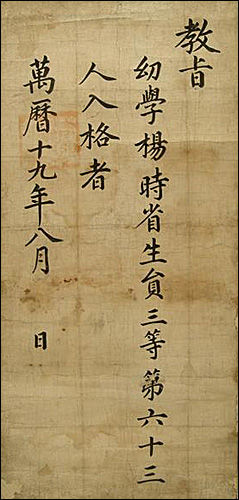 教旨
幼學楊時省生員三等第六十三
人入格者
萬曆十九年八月　日